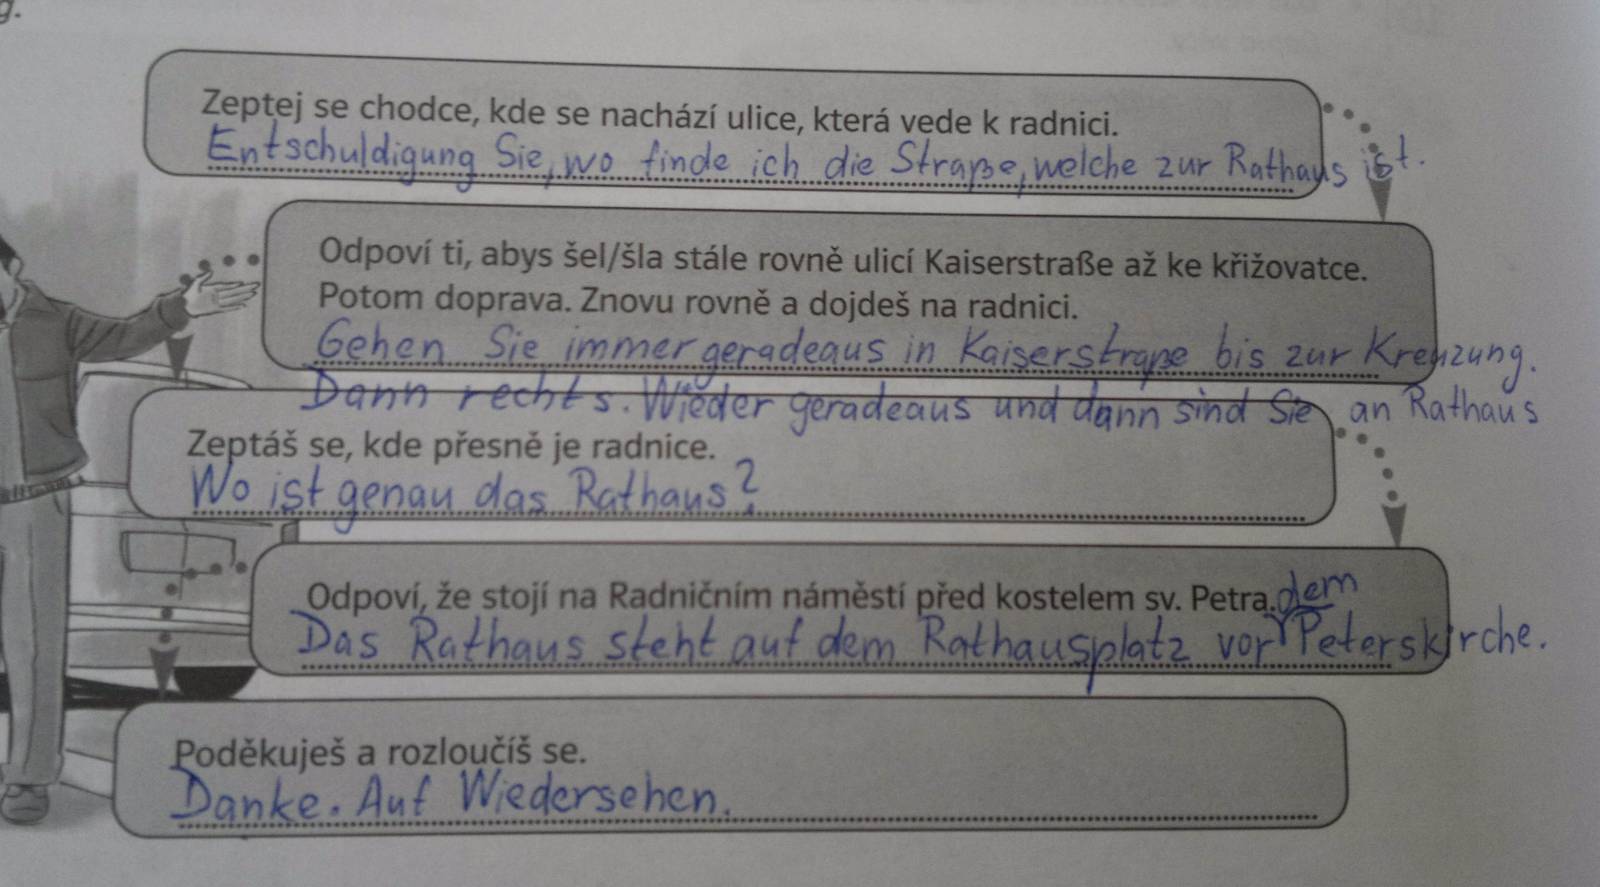 g.
Zeptej se chodce, kde se nachází ulice, která vede k radnici.
Entschuldigung Sie, wo finde ich die Straße, welche zur Rathaus ist.
Odpoví ti, abys šel/šla stále rovně ulicí Kaiserstraße až ke křižovatce.
Potom doprava. Znovu rovně a dojdeš na radnici.
Gehen Sie immer geradeaus in Kaiserstraße bis zur Kreuzung.
Dann rechts. Wieder geradeaus und dann sind Sie an Rathaus
Zeptáš se, kde přesně je radnice.
Wo ist genau das Rathaus?
Odpoví, že stojí na Radničním náměstí před kostelem sv. Petra.
Das Rathaus steht auf dem Rathausplatz vor dem Peterskirche.
Poděkuješ a rozloučíš se.
Danke. Auf Wiedersehen.